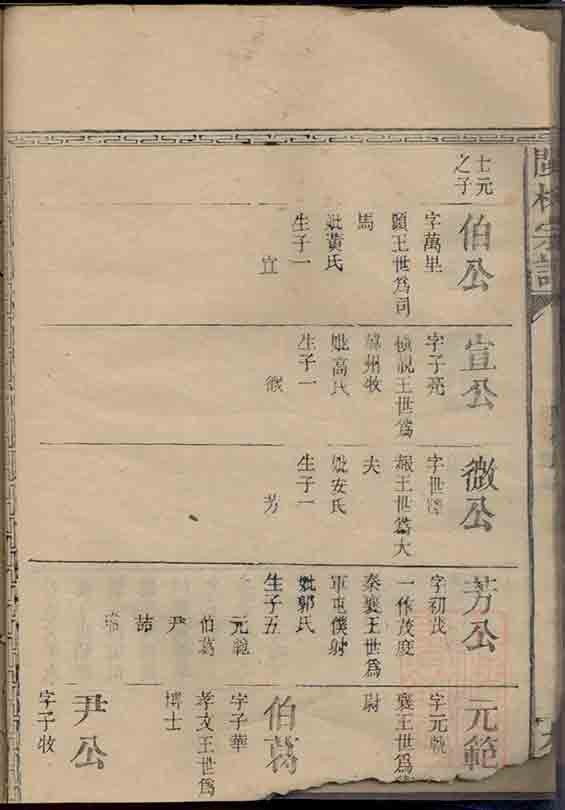 士元
之子
伯公
字萬里
顯王世爲司
馬
妣黃氏
生子一
宣
宣公
字子亮
慎靚王世爲
州牧
妣高氏
生子一
微
微公
字世
赧王世爲大
夫
妣安氏
生子一
芳
芳公
字初茂
一作茂度
秦襄王世爲
軍屯僕射
妣郭氏
生子五
元範
伯葛
尹
喆
元範
字元
襄王世爲
尉
伯葛
字子華
孝文王世爲
博士
尹公
字子牧